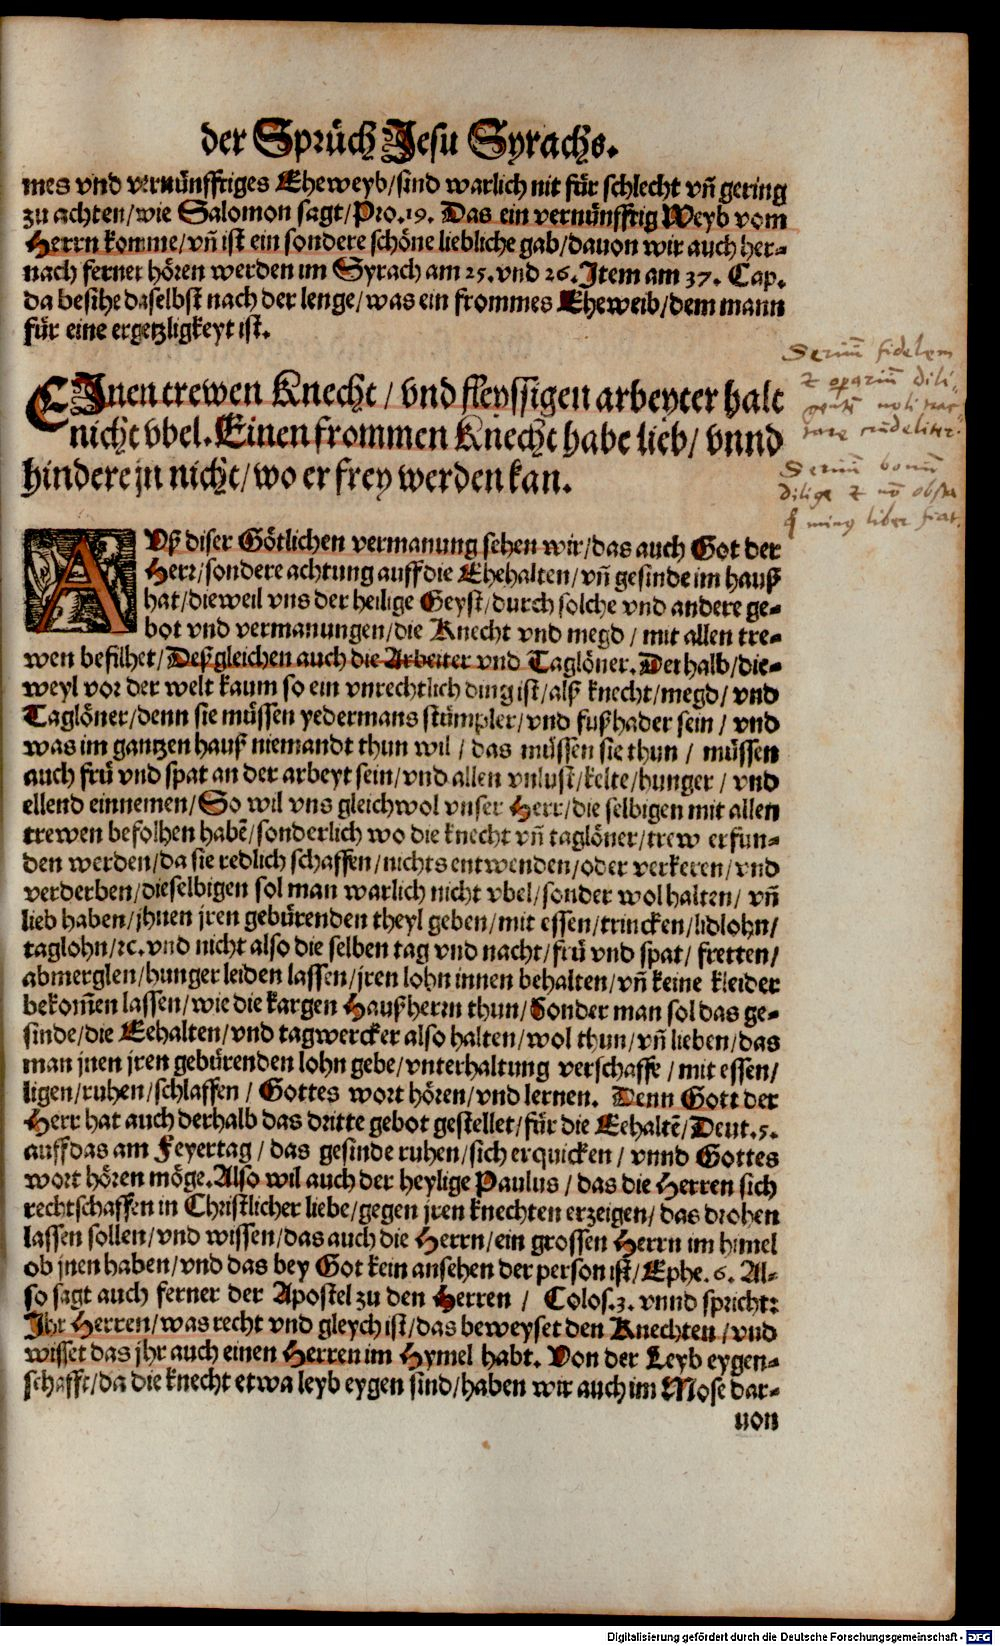 der Sprüch Jesu Syrachs.
mes vnd vernünfftiges Eheweyb/sind warlich nit für schlecht vñ gering
zu achten/wie Salomon sagt/Pro.19. Das ein vernünfftig Weyb vom
Herrn komme/vñ ist ein sondere schöne liebliche gab/dauon wir auch her-
nach ferner hören werden im Syrach am 25.vnd 26.Item am 37. Cap.
da besihe daselbst nach der lenge/was ein frommes Eheweib/dem mann
für eine ergetzligkeyt ist.
EInen trewen Knecht/vnd fleyssigen arbeyter halt
nicht vbel.Einen frommen Knecht habe lieb/vnnd
hindere jn nicht/wo er frey werden kan.
Seruũ fidelem
et operariũ dili-
gentẽ noli trac-
tare crudeliter.
Seruũ bonũ
dilige et nõ obsta
liber fiat.
AVß diser Götlichen vermanung sehen wir/das auch Got der
Herr/sondere achtung auff die Ehehalten/vñ gesinde im hauß
hat/dieweil vns der heilige Geyst/durch solche vnd andere ge-
bot vnd vermanungen/die Knecht vnd megd/mit allen tre-
wen befilhet/Deßgleichen auch die Arbeiter vnd Taglöner. Derhalb/die-
weyl vor der welt kaum so ein vnrechtlich ding ist/alß knecht/megd/vnd
Taglöner/denn sie müssen yedermans stümpler/vnd fußhader sein/vnd
was im gantzen hauß niemandt thun wil/das müssen sie thun/müssen
auch frü vnd spat an der arbeyt sein/vnd allen vnlust/kelte/hunger/vnd
ellend einnemen/So wil vns gleichwol vnser Herr/die selbigen mit allen
trewen befolhen habẽ/sonderlich wo die knecht vñ taglöner/trew erfun-
den werden/da sie redlich schaffen/nichts entwenden/oder verkeren/vnd
verderben/dieselbigen sol man warlich nicht vbel/sonder wol halten/vñ
lieb haben/jhnen jren gebürenden theyl geben/mit essen/trincken/lidlohn/
taglohn/ꝛc.vnd nicht also die selben tag vnd nacht/frü vnd spat/fretten/
abmerglen/hunger leiden lassen/jren lohn innen behalten/vñ keine kleider
bekom̃en lassen/wie die kargen Haußherrn thun/Sonder man sol das ge-
sinde/die Eehalten/vnd tagwercker also halten/wol thun/vñ lieben/das
man jnen jren gebürenden lohn gebe/vnterhaltung verschaffe/mit essen/
ligen/ruhen/schlaffen/Gottes wort hören/vnd lernen. Denn Gott der
Herr hat auch derhalb das dritte gebot gestellet/für die Eehaltẽ/Deut.5.
auff das am Feyertag/das gesinde ruhen/sich erquicken/vnnd Gottes
wort hören möge.Also wil auch der heylige Paulus/das die Herren sich
rechtschaffen in Christlicher liebe/gegen jren knechten erzeigen/das drohen
lassen sollen/vnd wissen/das auch die Herrn/ein grossen Herrn im himel
ob jnen haben/vnd das bey Got kein ansehen der person ist/Ephe.6. Al-
so sagt auch ferner der Apostel zu den Herren/Colos.3. vnnd spricht:
Ihr Herren/was recht vnd gleych ist/das beweyset den Knechten/vnd
wisset das jhr auch einen Herren im Hymel habt. Von der Leyb eygen-
schafft/da die knecht etwa leyb eygen sind/haben wir auch im Mose dar-
uon
Digitalisierung gefördert durch die Deutsche Forschungsgemeinschaft - DFG